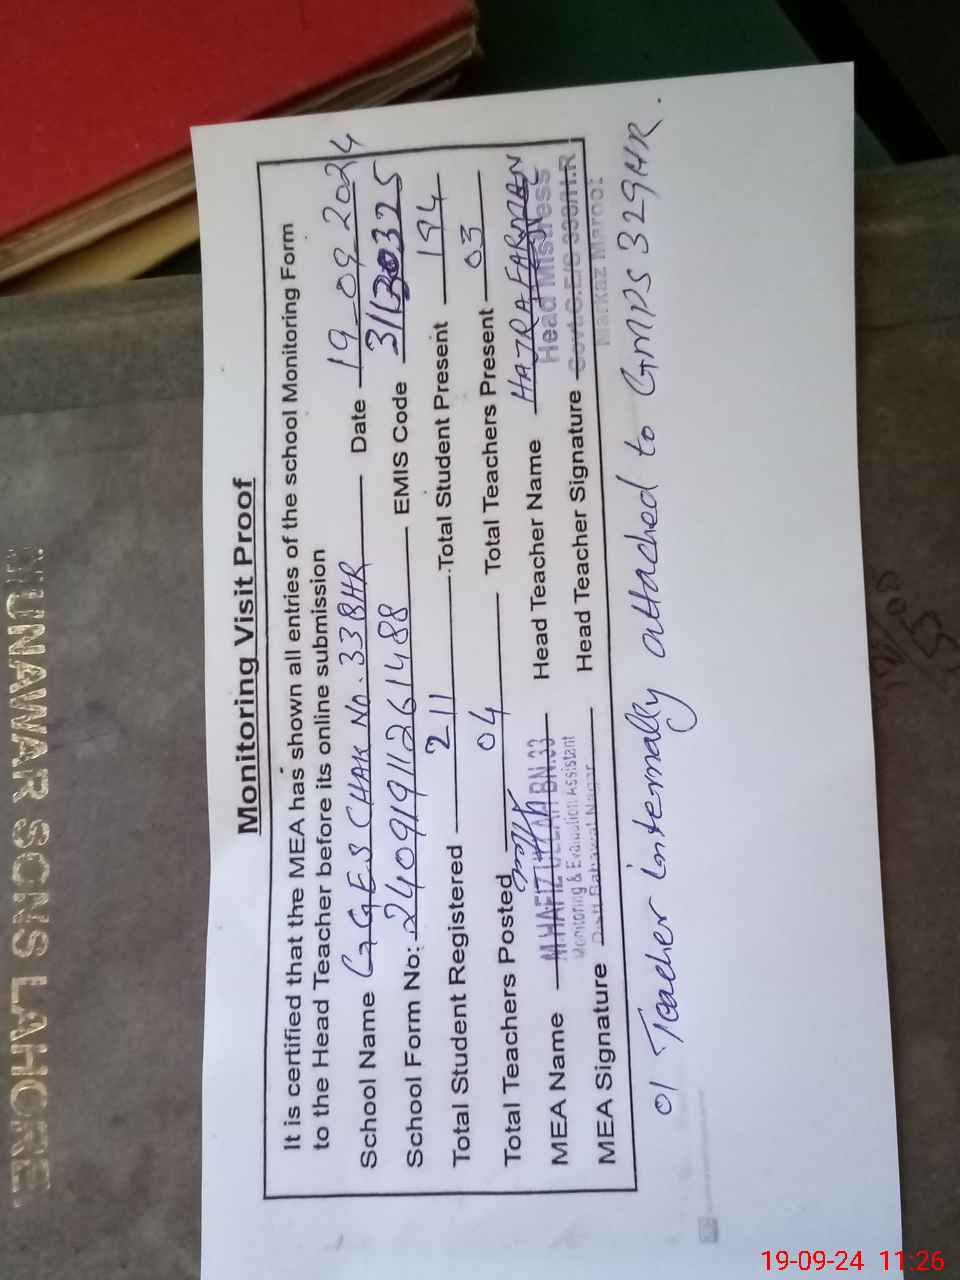 Monitoring Visit Proof
It is certified that the MEA has shown all entries of the school Monitoring Form
to the Head Teacher before its online submission
School Name GGES CHAK No. 33 Date 19_09_2024
School Form No: 24091911261488 EMIS Code 31130325
Total Student Registered 211 Total Student Present 194
Total Teachers Posted 04 Total Teachers Present 03
MEA Name M.HAFIZ BN.33 Head Teacher Name HAJRA
Monitoring & Evaluation Assistant Head Mistress
MEA Signature Head Teacher Signature
Markaz Maroot
01 Teacher internally attached to GMPS 329HR.
MUNAWAR SONS LAHORE
19-09-24 11:26